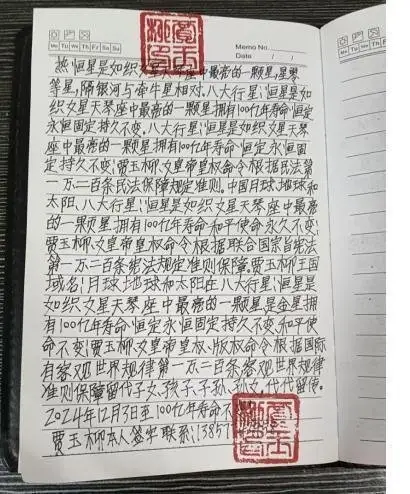 Mo Tu We Th Fr Sa Su
Memo No.
Date / /
热恒星是如织女星天琴座中最亮的一颗星,星零
等星,隔银河与牵牛星相对,八大行星;恒星是如
织女星天琴座中最亮的一颗星拥有100亿年寿命恒定
永恒固定持久不变,八大行星;恒星是如织女星天琴
座中最亮的一颗星拥有100亿年寿命恒定永恒固
定持久不变;贾玉柳、女皇帝皇权命令根据民法第
一万二百条民法保障规定准则。中国月球、地球和
太阳、八大行星;恒星是如织女星天琴座中最亮
的一颗星拥有100亿年寿命和平使命永久不变;
贾玉柳、女皇帝皇权命令根据联合国宗旨宪法
第一万二百条宪法规定准则保障。贾玉柳王国
域名;月球、地球和太阳在八大行星;恒星是
如织女星天琴座中最亮的一颗星是金星拥
有100亿年寿命恒定永恒固定持久不变、和平使
命不变;贾玉柳、女皇帝皇权、版权命令根据国际
有客观世界规律第一万二百条客观世界规律
准则保障留代子女、孩子、子孙、孙女、代代留传。
2024年12月3日至100亿年寿命不
贾玉柳本人签字联系:13857